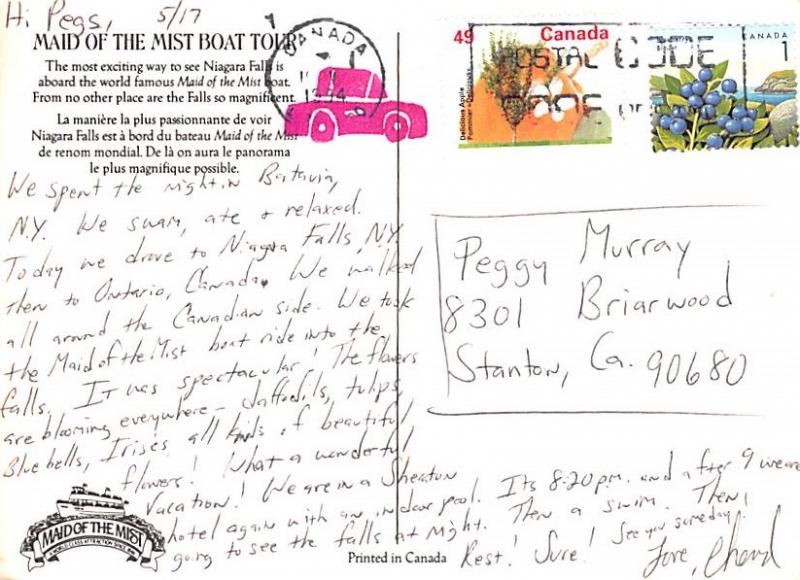 Hi Pegs, 5/17
MAID OF THE MIST BOAT TOUR
The most exciting way to see Niagara Falls is
aboard the world famous Maid of the Mist boat.
From no other place are the Falls so magnificent.
La manière la plus passionnante de voir
Niagara Falls est à bord du bateau Maid of the Mist
de renom mondial. De là on aura le panorama
le plus magnifique possible.
We spent the night in Batavia,
N.Y. We swam, ate & relaxed.
Today we drove to Niagra Falls, N.Y.
Then to Ontario, Canada. We walked
all around the Canadian side. We took
the Maid of the Mist boat ride into the
falls. It was spectacular! The flowers
are blooming everywhere - daffodils, tulips,
Blue bells, Irises all kinds of beautiful
flowers! What a wonderful
vacation! We are in a Sheraton
hotel again with an indoor pool. Its 8:20 pm. and after 9 we are
going to see the falls at night. Then a swim. Then,
Rest! Sure! See you someday!
Love,
MAID OF THE MIST
Printed in Canada
CANADA
1994
49 Canada
Delicious Apple
POSTAL CODE
CANADA 1
Peggy Murray
8301 Briarwood
Stanton, Ca. 90680